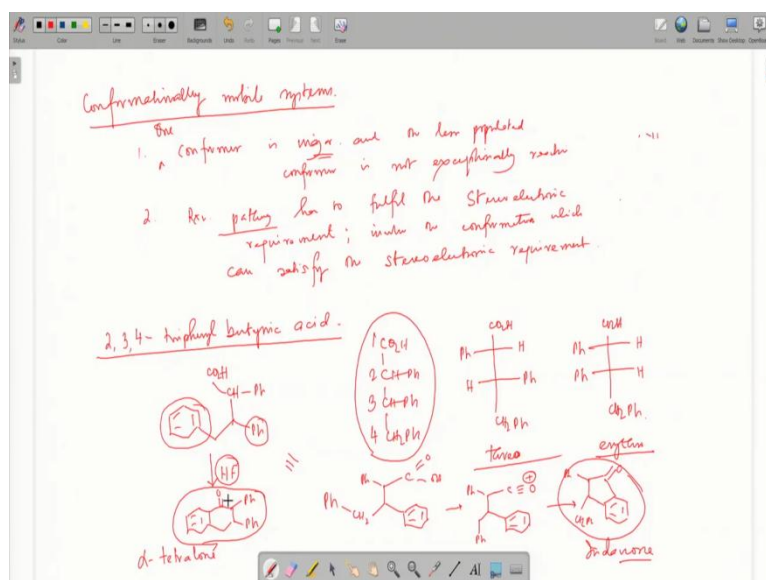 Stylus Color Line Eraser Backgrounds Undo Redo Pages Previous Next Erase
Board Web Documents Show Desktop
Conformationally mobile systems.
One
1. ^ Conformer is major and the less populated
conformer is not exceptionally reactive
2. Rxn. pathway has to fulfil the stereoelectronic
requirement; involve the conformation which
can satisfy the stereoelectronic requirement.
2,3,4- triphenyl butyric acid.
CO2H
CH-Ph
Ph
HF
O
Ph
Ph
α-tetralone
1 CO2H
2 CH-Ph
3 CH-Ph
4 CH2Ph
CO2H
Ph H
H Ph
CH2Ph
threo
CO2H
Ph H
Ph H
CH2Ph.
erythro
Ph C=O
OH
Ph-CH2
Ph C≡O
+
Ph
Ph O
CH2Ph
Indanone